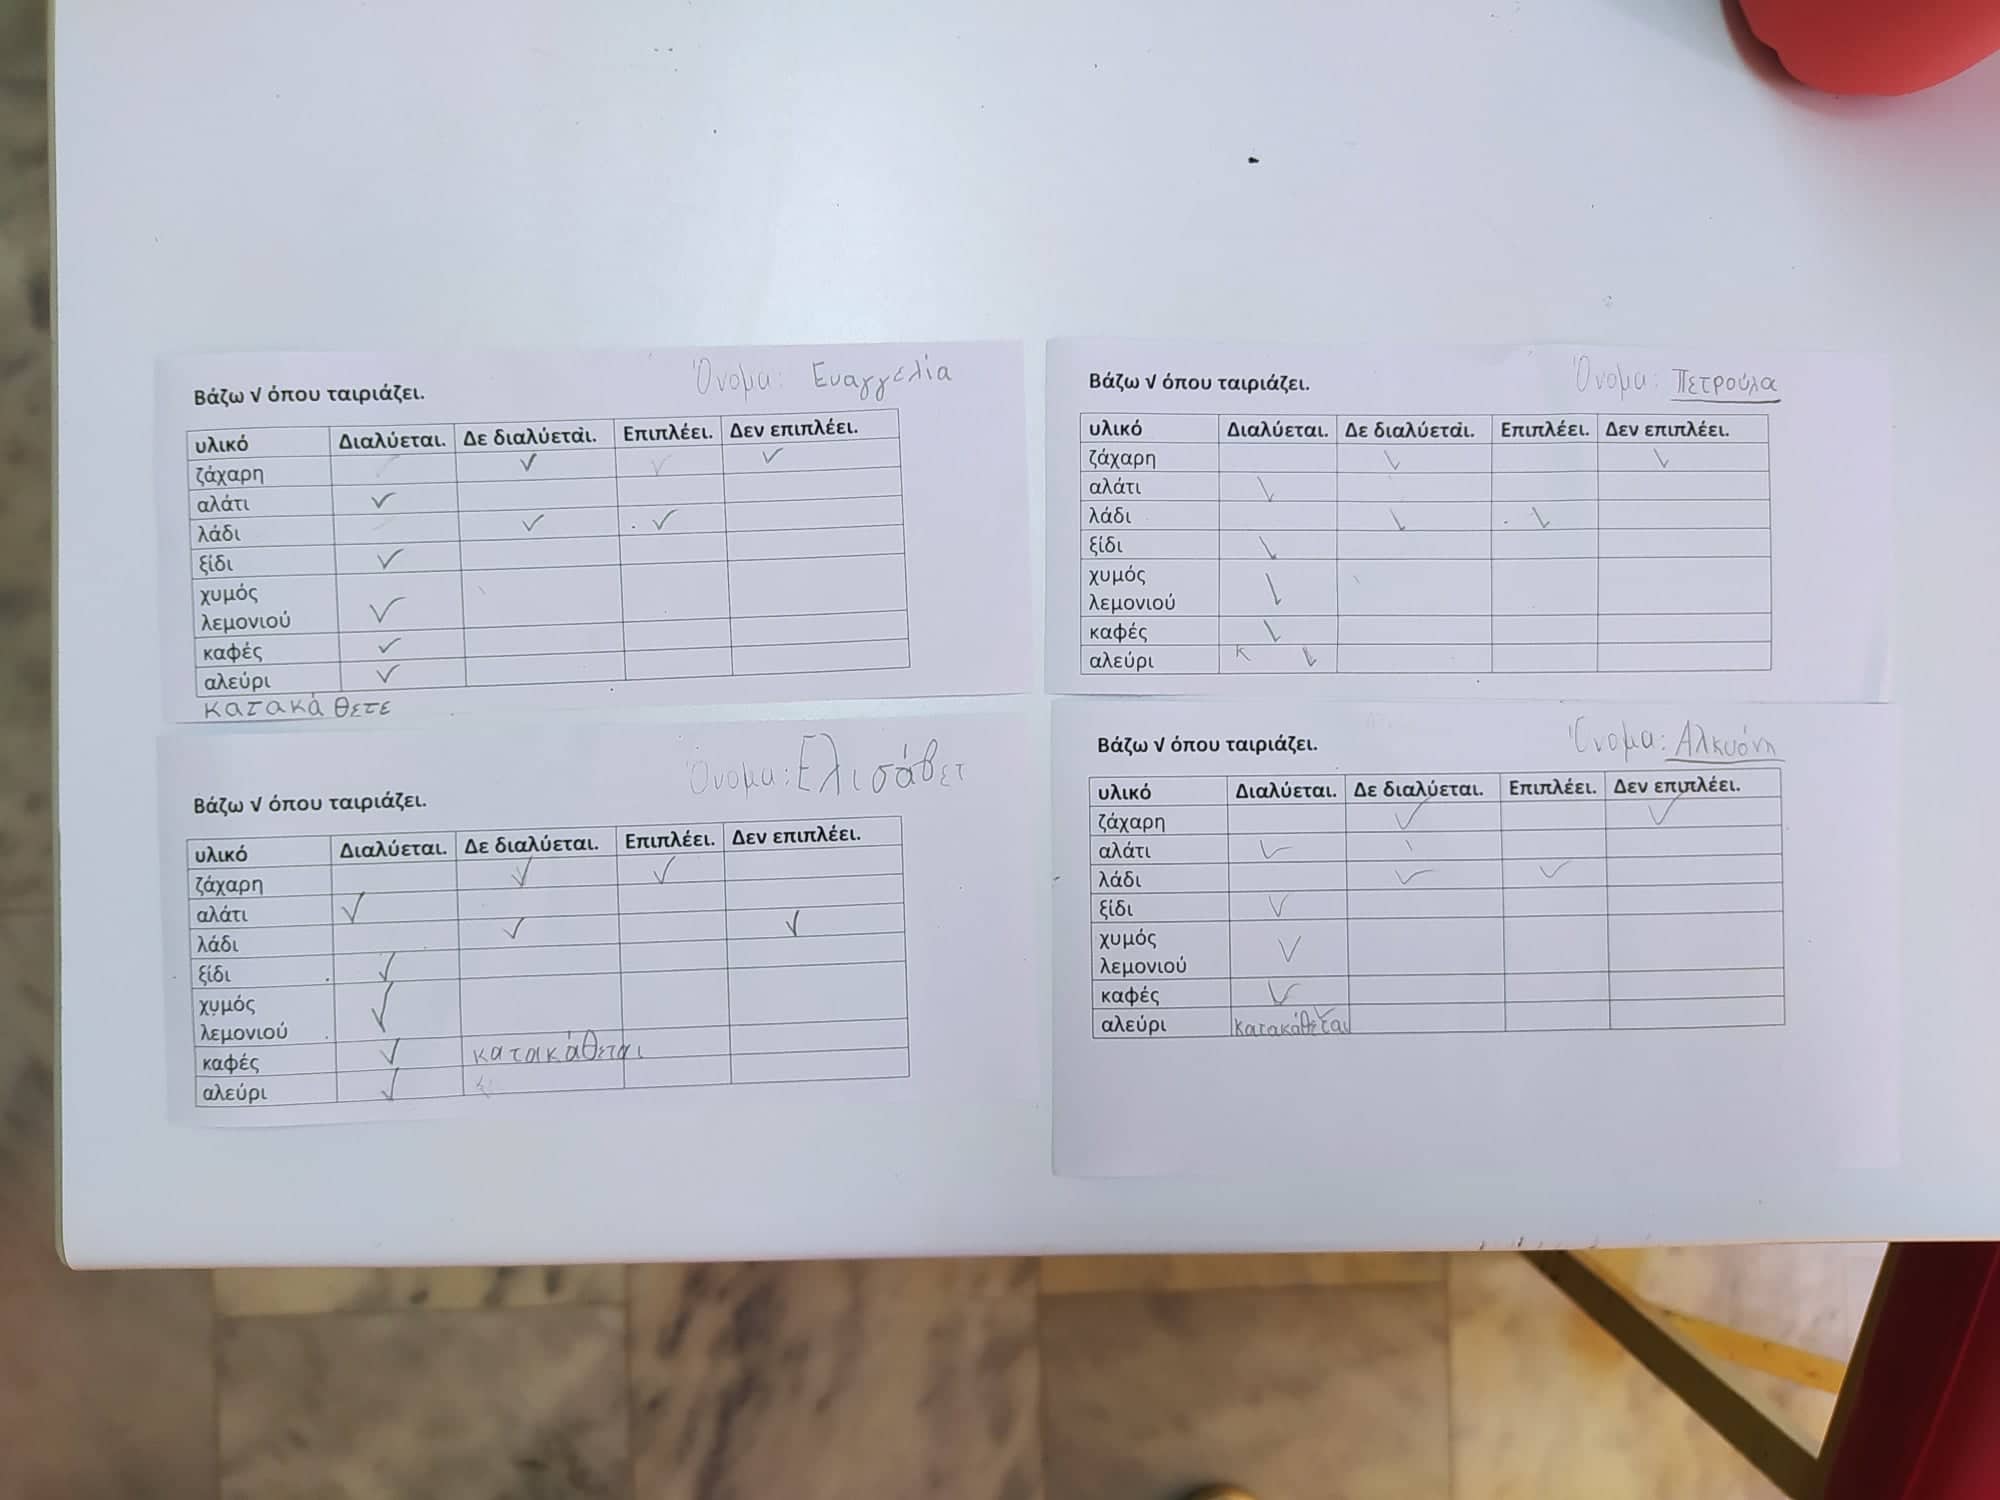 Βάζω √ όπου ταιριάζει. Όνομα: Ευαγγελία
υλικό Διαλύεται. Δε διαλύεται. Επιπλέει. Δεν επιπλέει.
ζάχαρη ✓ ✓
αλάτι ✓
λάδι ✓ ✓
ξίδι ✓
χυμός
λεμονιού ✓
καφές ✓
αλεύρι ✓
κατακάθετε
Βάζω √ όπου ταιριάζει. Όνομα: Πετρούλα
υλικό Διαλύεται. Δε διαλύεται. Επιπλέει. Δεν επιπλέει.
ζάχαρη ✓ ✓
αλάτι ✓
λάδι ✓ ✓
ξίδι ✓
χυμός
λεμονιού ✓
καφές ✓
αλεύρι κ ✓
Βάζω √ όπου ταιριάζει. Όνομα: Ελισάβετ
υλικό Διαλύεται. Δε διαλύεται. Επιπλέει. Δεν επιπλέει.
ζάχαρη ✓ ✓
αλάτι ✓
λάδι ✓ ✓
ξίδι ✓
χυμός
λεμονιού ✓
καφές ✓ κατακάθεται
αλεύρι ✓
Βάζω √ όπου ταιριάζει. Όνομα: Αλκυόνη
υλικό Διαλύεται. Δε διαλύεται. Επιπλέει. Δεν επιπλέει.
ζάχαρη ✓ ✓
αλάτι ✓
λάδι ✓ ✓
ξίδι ✓
χυμός
λεμονιού ✓
καφές ✓
αλεύρι κατακάθεται ✓